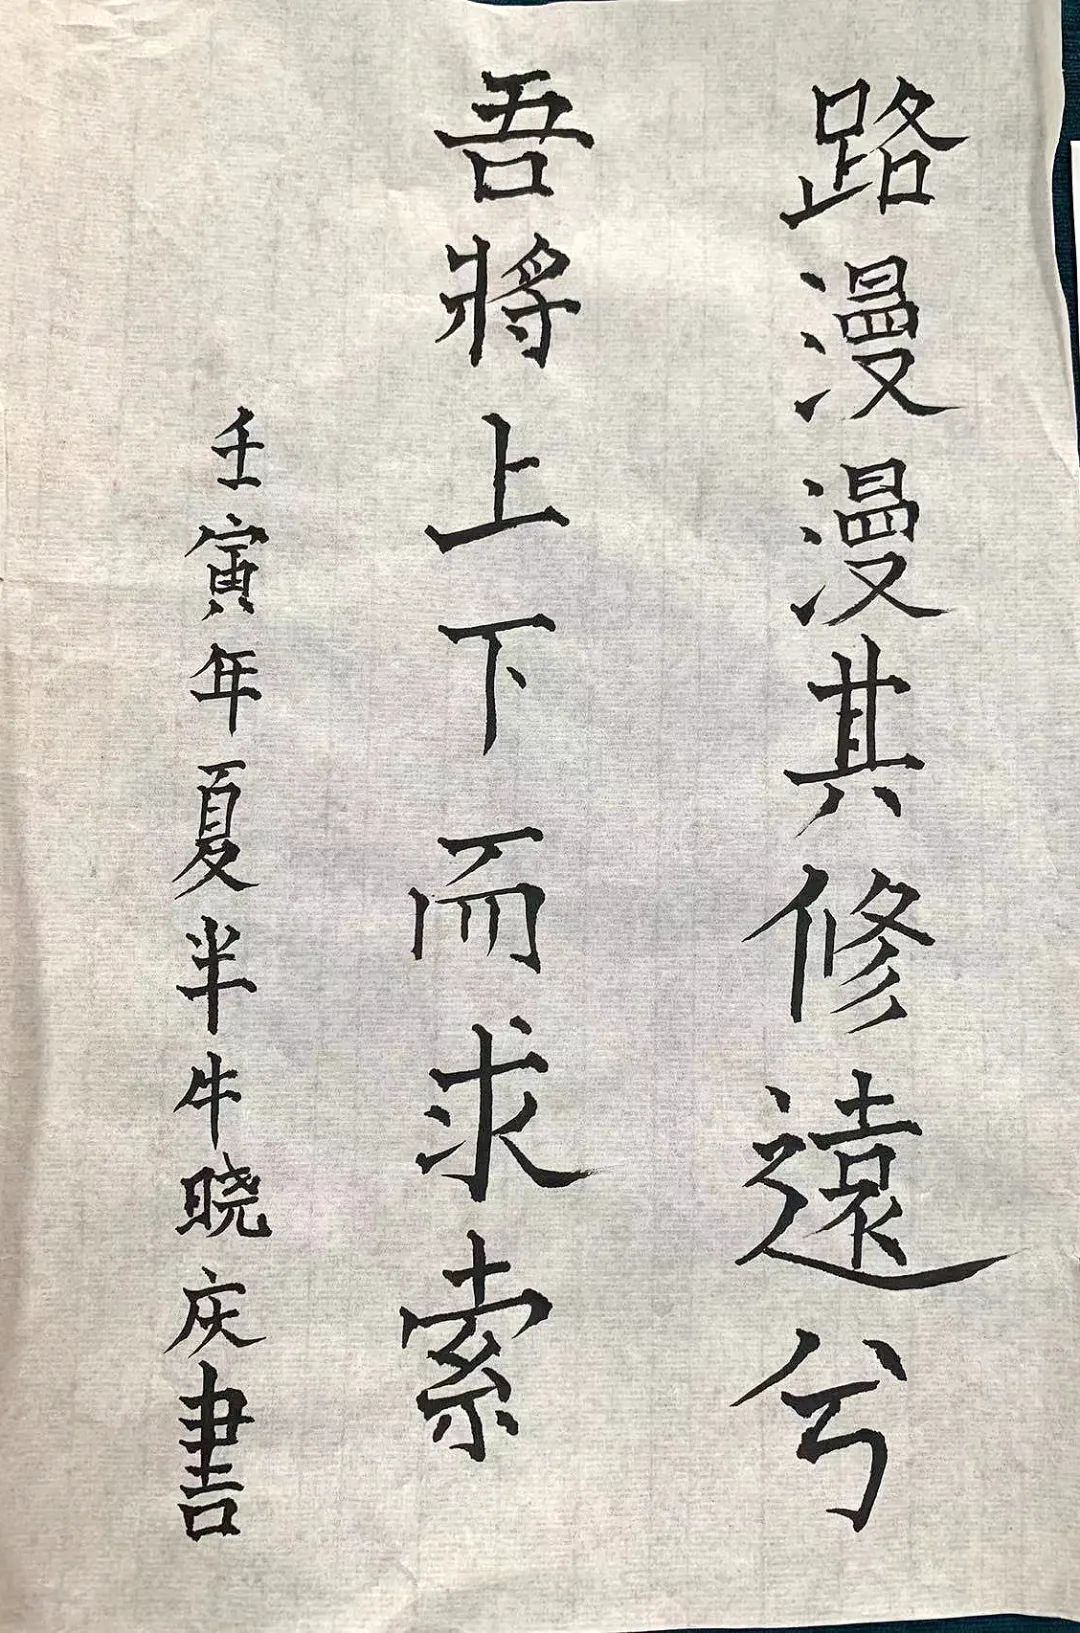 路漫漫其修遠兮
吾將上下而求索
壬寅年夏半牛晓庆書